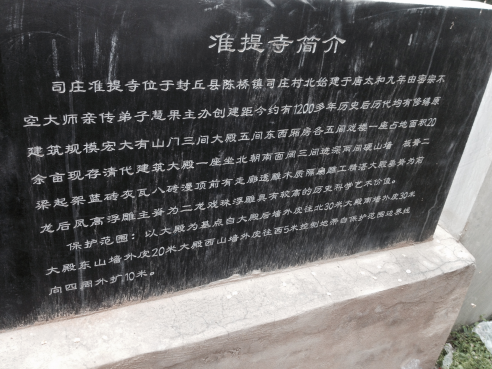 准提寺简介
司庄准提寺位于封丘县陈桥镇司庄村北始建于唐太和九年由密宗不
空大师亲传弟子慧果主办创建距今约有1200多年历史后历代均有修缮原
建筑规模宏大有山门三间大殿五间东西厢房各五间戏楼一座占地面积20
余亩现存清代建筑大殿一座坐北朝南面阔三间进深两间硬山墙 板脊二
梁起架蓝砖灰瓦八砖漫顶前有走廊透雕木质隔扇雕工精湛大殿垂脊为前
龙后凤高浮雕主脊为二龙戏珠浮雕具有较高的历史科学艺术价值。
保护范围：以大殿为基点自大殿后墙外皮往北30米大殿南墙外皮30米
大殿东山墙外皮20米大殿西山墙外皮往西5米控制地带自保护范围边界线
向四周外扩10米。